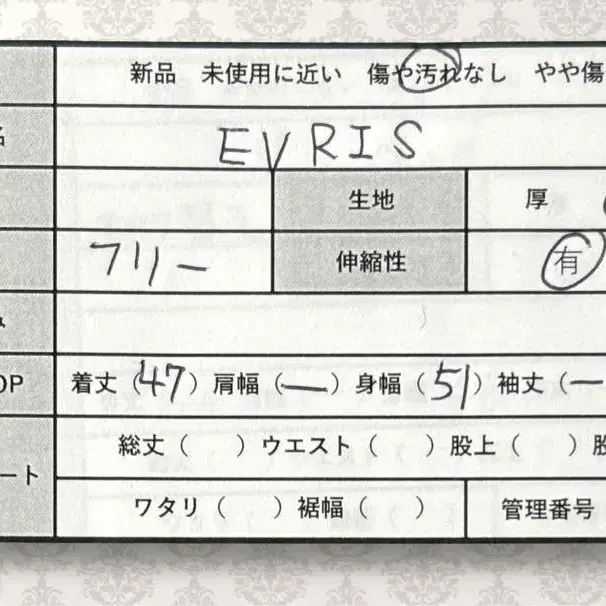 新品 未使用に近い 傷や汚れなし やや傷
名 EVRIS
生地 厚
フリー 伸縮性 有
OP 着丈(47)肩幅(ー)身幅(51)袖丈(ー
総丈( )ウエスト( )股上( )股
ート
ワタリ( )裾幅( ) 管理番号